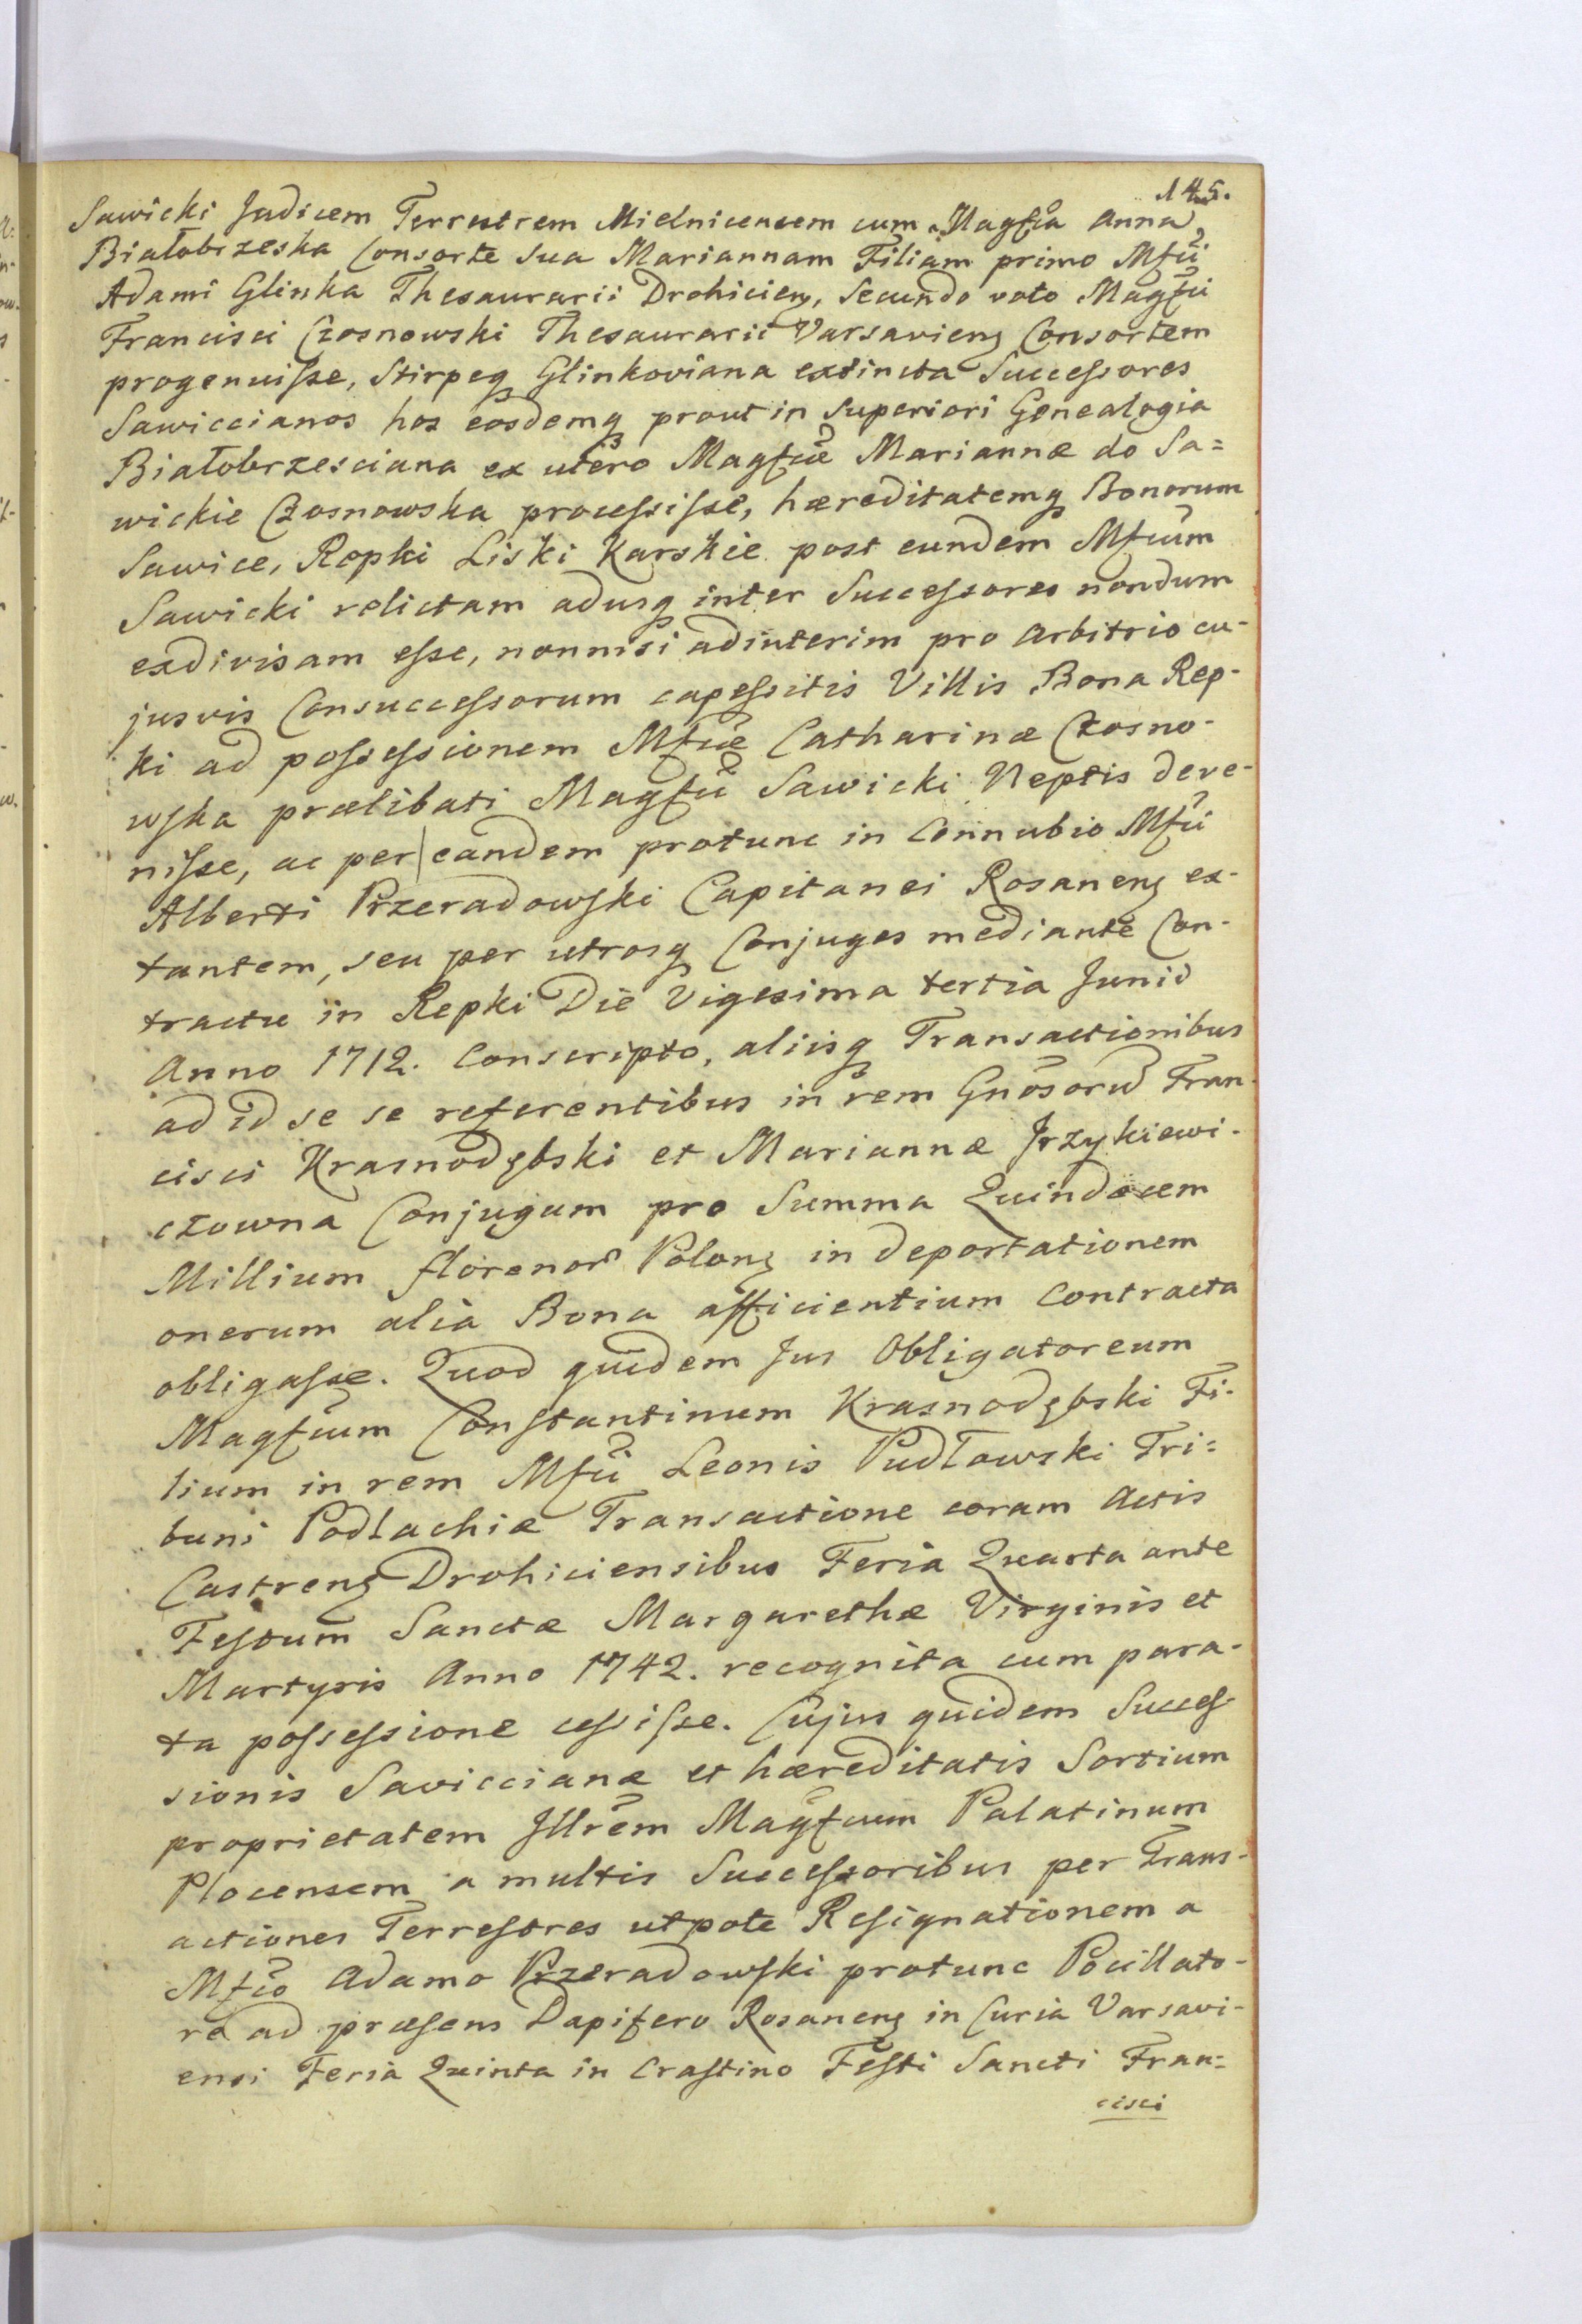 145.
Sawicki Judicem Terrestrem Mielnicensem cum Magfca Anna
Białobrzeska Consorte sua Mariannam Filiam primo Mfci
Adami Glinka Thesaurarii Drohicieng, Secundo voto Magfci
Francisci Czosnowski Thesaurarii Varsavieng Consortem
progenuisse, Stirpeq Glinkoviana extincta Successores
Sawiccianos hos eosdemq prout in Superiori Genealogia
Białobrzesciana ex utero Magfcæ Mariannæ do Sa=
wickie Czosnowska processisse, hæreditatemq Bonorum
Sawice, Repki Liski Karskie post eundem Mfcum
Sawicki relictam adusq inter Successores nondum
exdivisam esse, nonnisi adinterim pro arbitrio cu-
jusvis Consuccessorum capessitis Villis Bona Rep-
ki ad possessionem Mfcæ Catharinæ Czosno-
wska prælibati Magfci Sawicki Neptis deve-
nisse, ac per eandem protunc in Connubio Mfci
Alberti Przeradowski Capitanei Rosaneng ex-
tantem, seu per utrosq Conjuges mediante Con-
tractu in Repki Die Vigesima tertia Junii
Anno 1712. Conscripto, aliisq Transactionibus
ad id se se referentibus in rem Gnosorũ Fran-
cisci Krasnodębski et Mariannæ Jrzykiewi-
czowna Conjugum pro Summa Quindecem
Millium florenor Polong in deportationem
onerum alia Bona afficientium Contracta
obligasse. Quod quidem Jus Obligatoreum
Magfcum Constantinum Krasnodębski Fi-
lium in rem Mfci Leonis Pudłowski Tri=
buni Podlachiæ Transactione coram Actis
Castreng Drohiciensibus Feria Quarta ante
Festum Sanctæ Margarethæ Virginis et
Martyris Anno 1742. recognita cum para-
ta possessione cessisse. Cujus quidem Succes-
sionis Saviccianæ et hæreditatis Sortium
proprietatem Jllrem Magfcum Palatinum
Plocensem a multis Successoribus per Trans-
actiones Terrestres utpote Resignationem a
Mfco Adamo Przeradowski protunc Pocillato-
re ad præsens Dapifero Rosaneng in Curia Varsavi-
ensi Feria Quinta in Crastino Festi Sancti Fran=
cisci